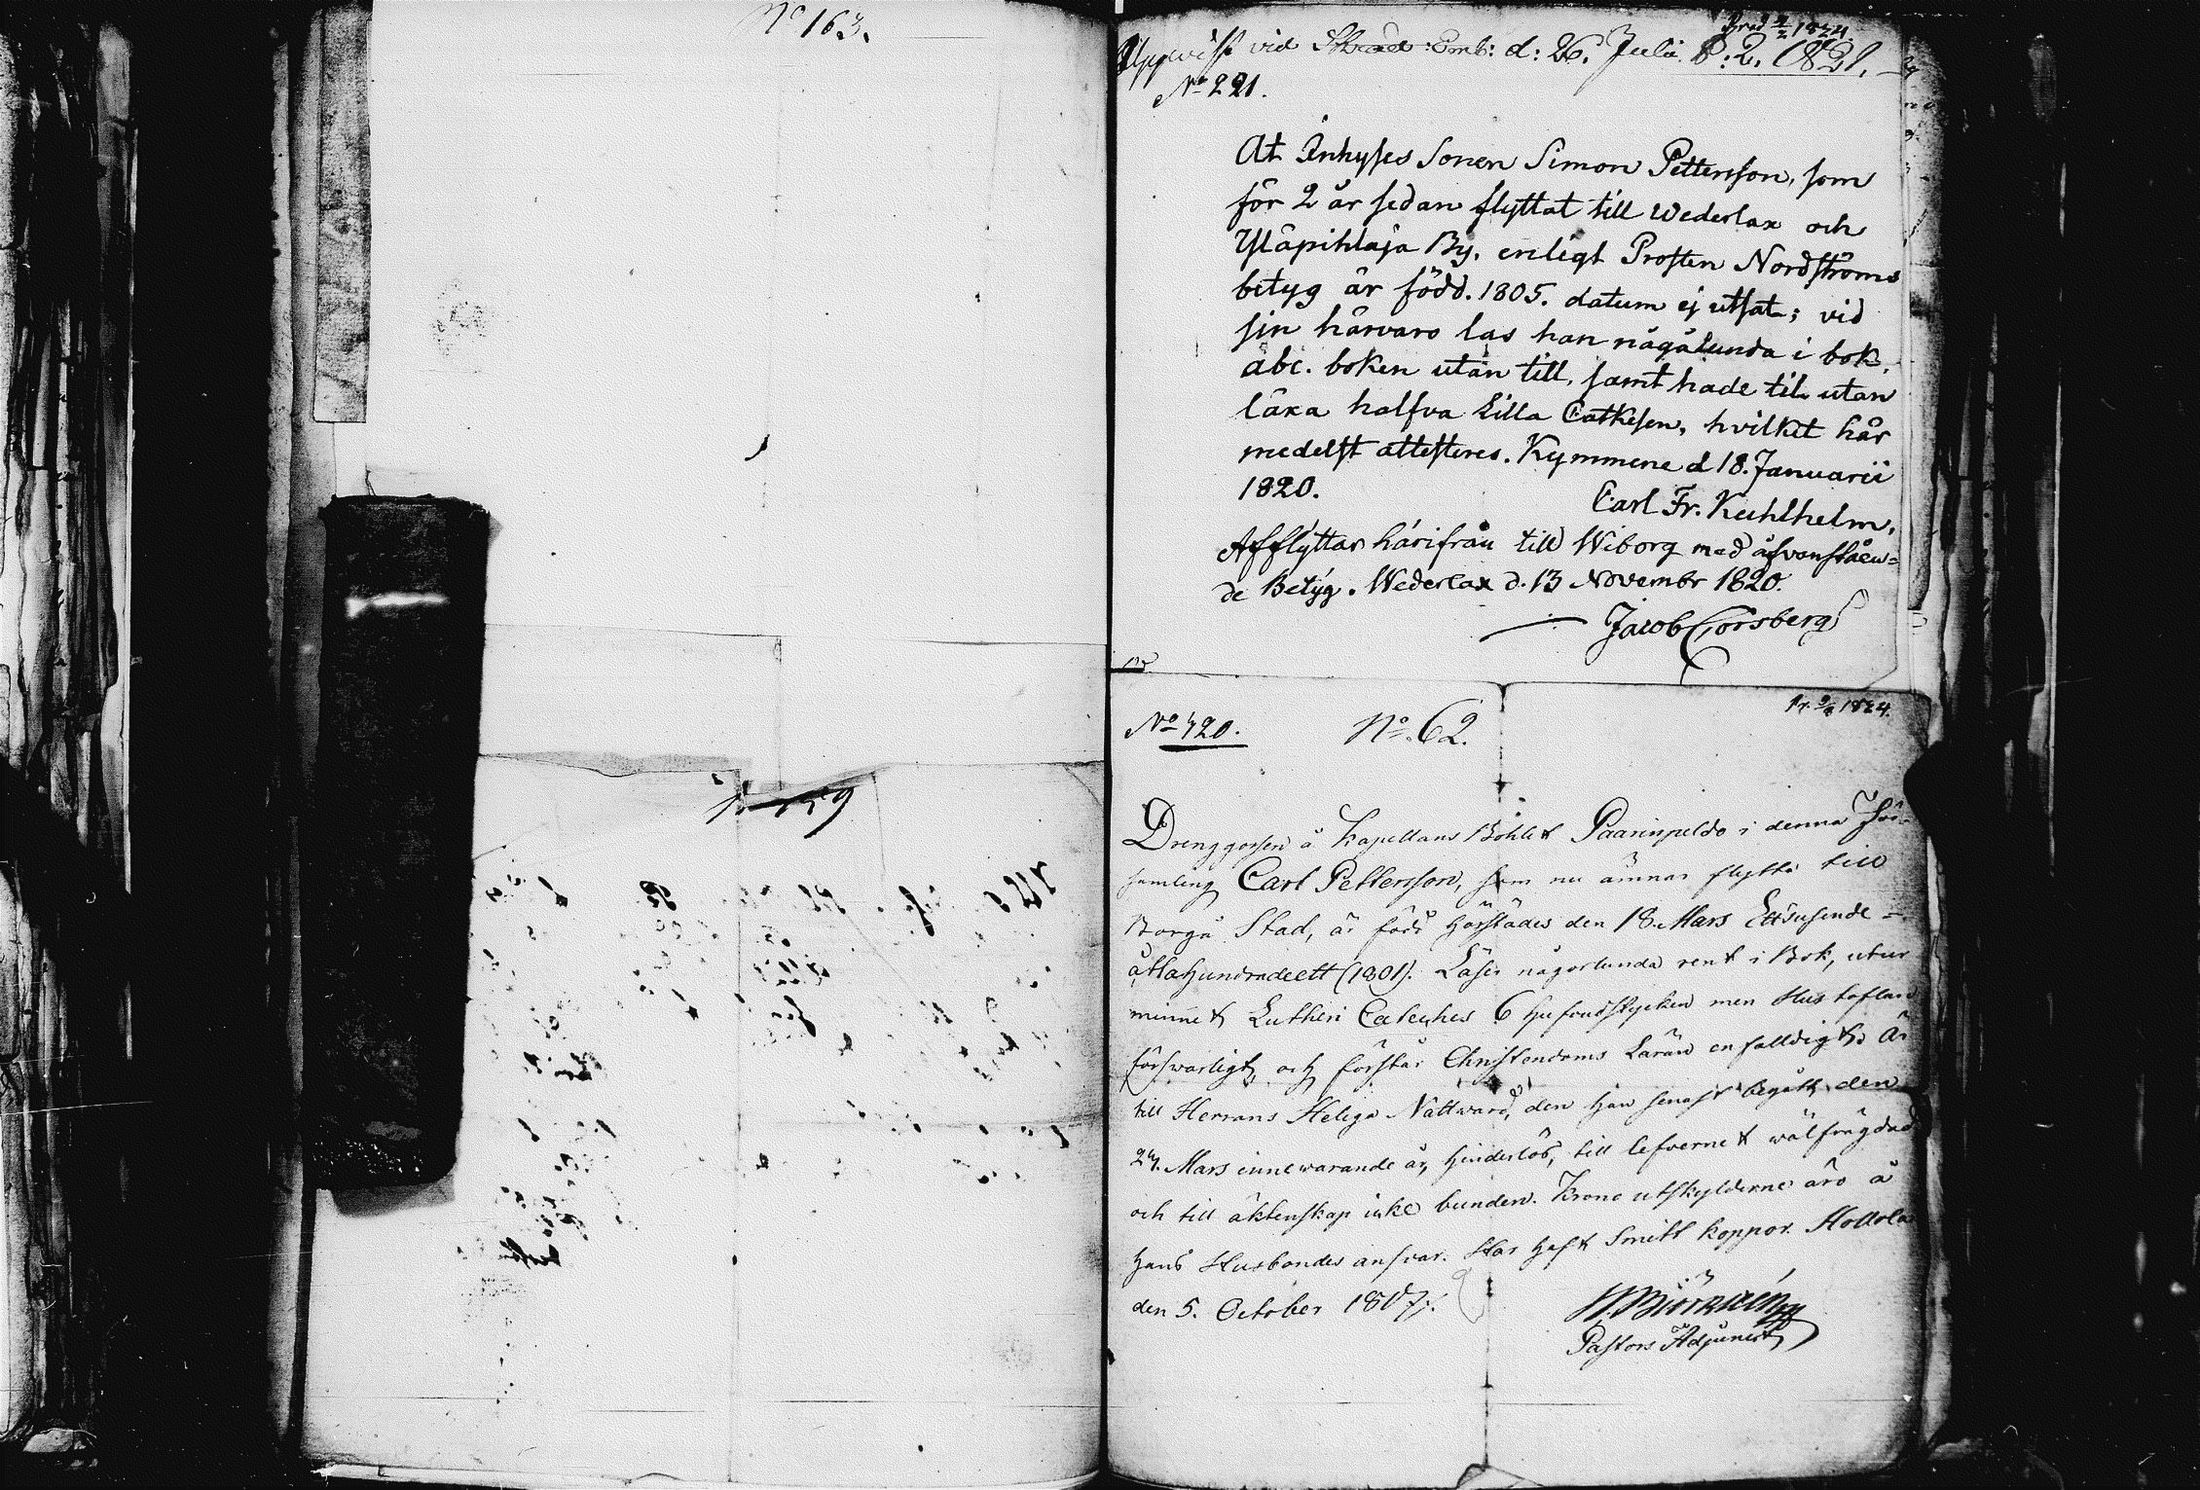 No 163.
Uppvist vid Skrad: Comb: d: 26. Julii P: 2. 1821.
No 221.
At Inhyses Sonen Simon Pettersson, som
för 2 år sedan flyttat till Wederlax och
Yläpihlaja By, enligt Prosten Nordströms
betyg är född. 1805. datum ej utsat; vid
sin härvaro las han någålunda i bok,
abc. boken utan till, samt hade til utan
läxa halfva Lilla Catkesen, hvilket här
medelst attesteres. Kymmene d 18. Januarii
1820.
Carl Fr. Kuhlhelm.
Afflyttar härifrån till Wiborg med åfvanståen=
de Betyg. Wederlax d. 13 Novembr 1820.
Jacob Forsberg
No 420.
No. 62.
Drenggossen å Kapellans Bohlet Paarinpeldo i denna För-
samling Carl Pettersson, som nu ämnar flytta till
Borgå Stad, är född härstädes den 18. Mars Ettusende =
åttahundradeett (1801). Läser någorlunda rent i Bok, utur
minnet Lutheri Cateches 6 hufvudstycken men Hustaflan
försvarligt, och förstår Christendoms Läran enfalldigt. Är
till Herrans Heliga Nattward, den han senast begått den
24. Mars innewarande år, hinderlös, till lefvernet wälfrägdad
och till äktenskap icke bunden. Krono utskylderne äro å
hans Husbondes ansvar. Har haft Smitt koppor. Hollola
den 5. October 1817.
Pastors Adjunct